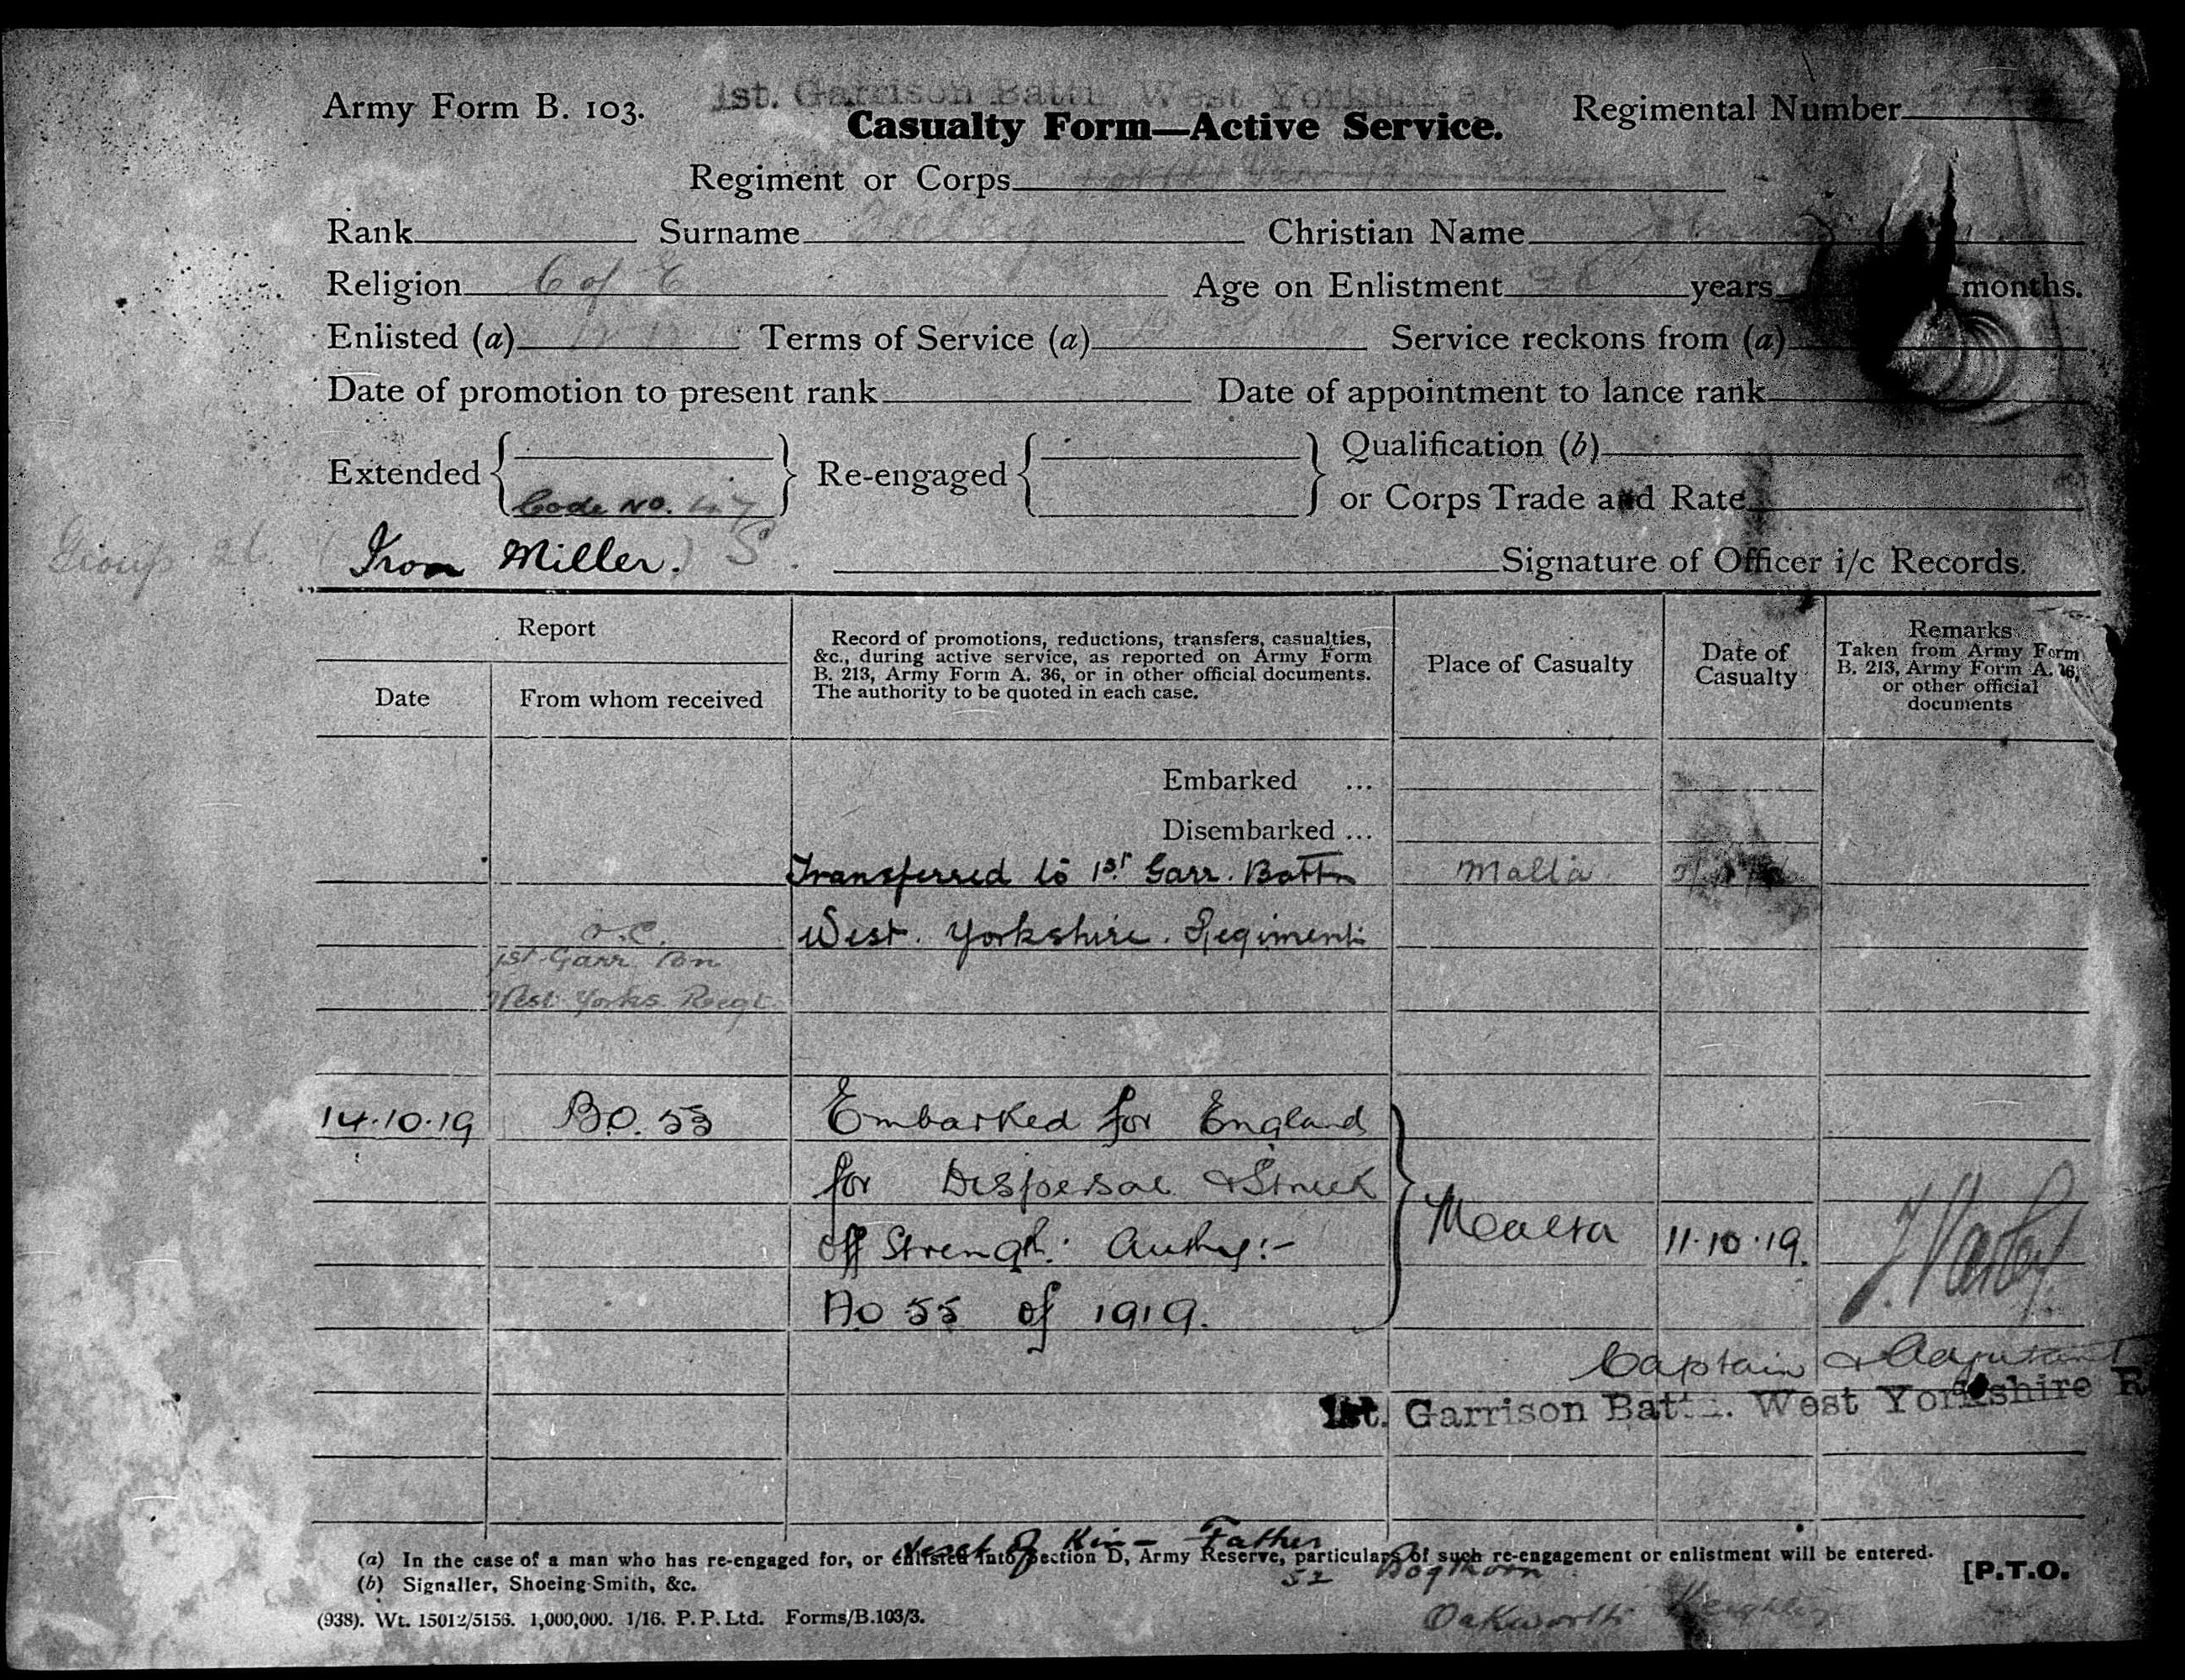 Army Form B. 103.
1st. Garrison Battn West Yorkshire
Regimental Number
Casualty Form—Active Service.
Regiment or Corps
Rank Surname Christian Name
Religion C of E Age on Enlistment years months.
Enlisted (a) Terms of Service (a) Service reckons from (a)
Date of promotion to present rank Date of appointment to lance rank
Extended Re-engaged Qualification (b)
Code No. 47 or Corps Trade and Rate
Group 26. (Iron Miller.) S. Signature of Officer i/c Records.
Report
Date
From whom received
Record of promotions, reductions, transfers, casualties,
&c., during active service, as reported on Army Form
B. 213, Army Form A. 36, or in other official documents.
The authority to be quoted in each case.
Place of Casualty
Date of
Casualty
Remarks
Taken from Army Form
B. 213, Army Form A. 36,
or other official
documents
Embarked ...
Disembarked ...
Transferred to 1st Garr. Battn Malta
West. Yorkshire. Regiment
O.C.
1st Garr Bn
West Yorks Regt.
14.10.19 B.O. 53 Embarked for England
for Dispersal & Struck
off Strength: Authy:- Malta 11.10.19.
AO 55 of 1919.
Captain & Adjutant
1st. Garrison Battn. West Yorkshire R
Next of Kin - Father
(a) In the case of a man who has re-engaged for, or enlisted into Section D, Army Reserve, particulars of such re-engagement or enlistment will be entered.
52 Bogthorn
(b) Signaller, Shoeing-Smith, &c.
[P.T.O.
Oakworth Keighley
(938). Wt. 15012/5156. 1,000,000. 1/16. P. P. Ltd. Forms/B.103/3.